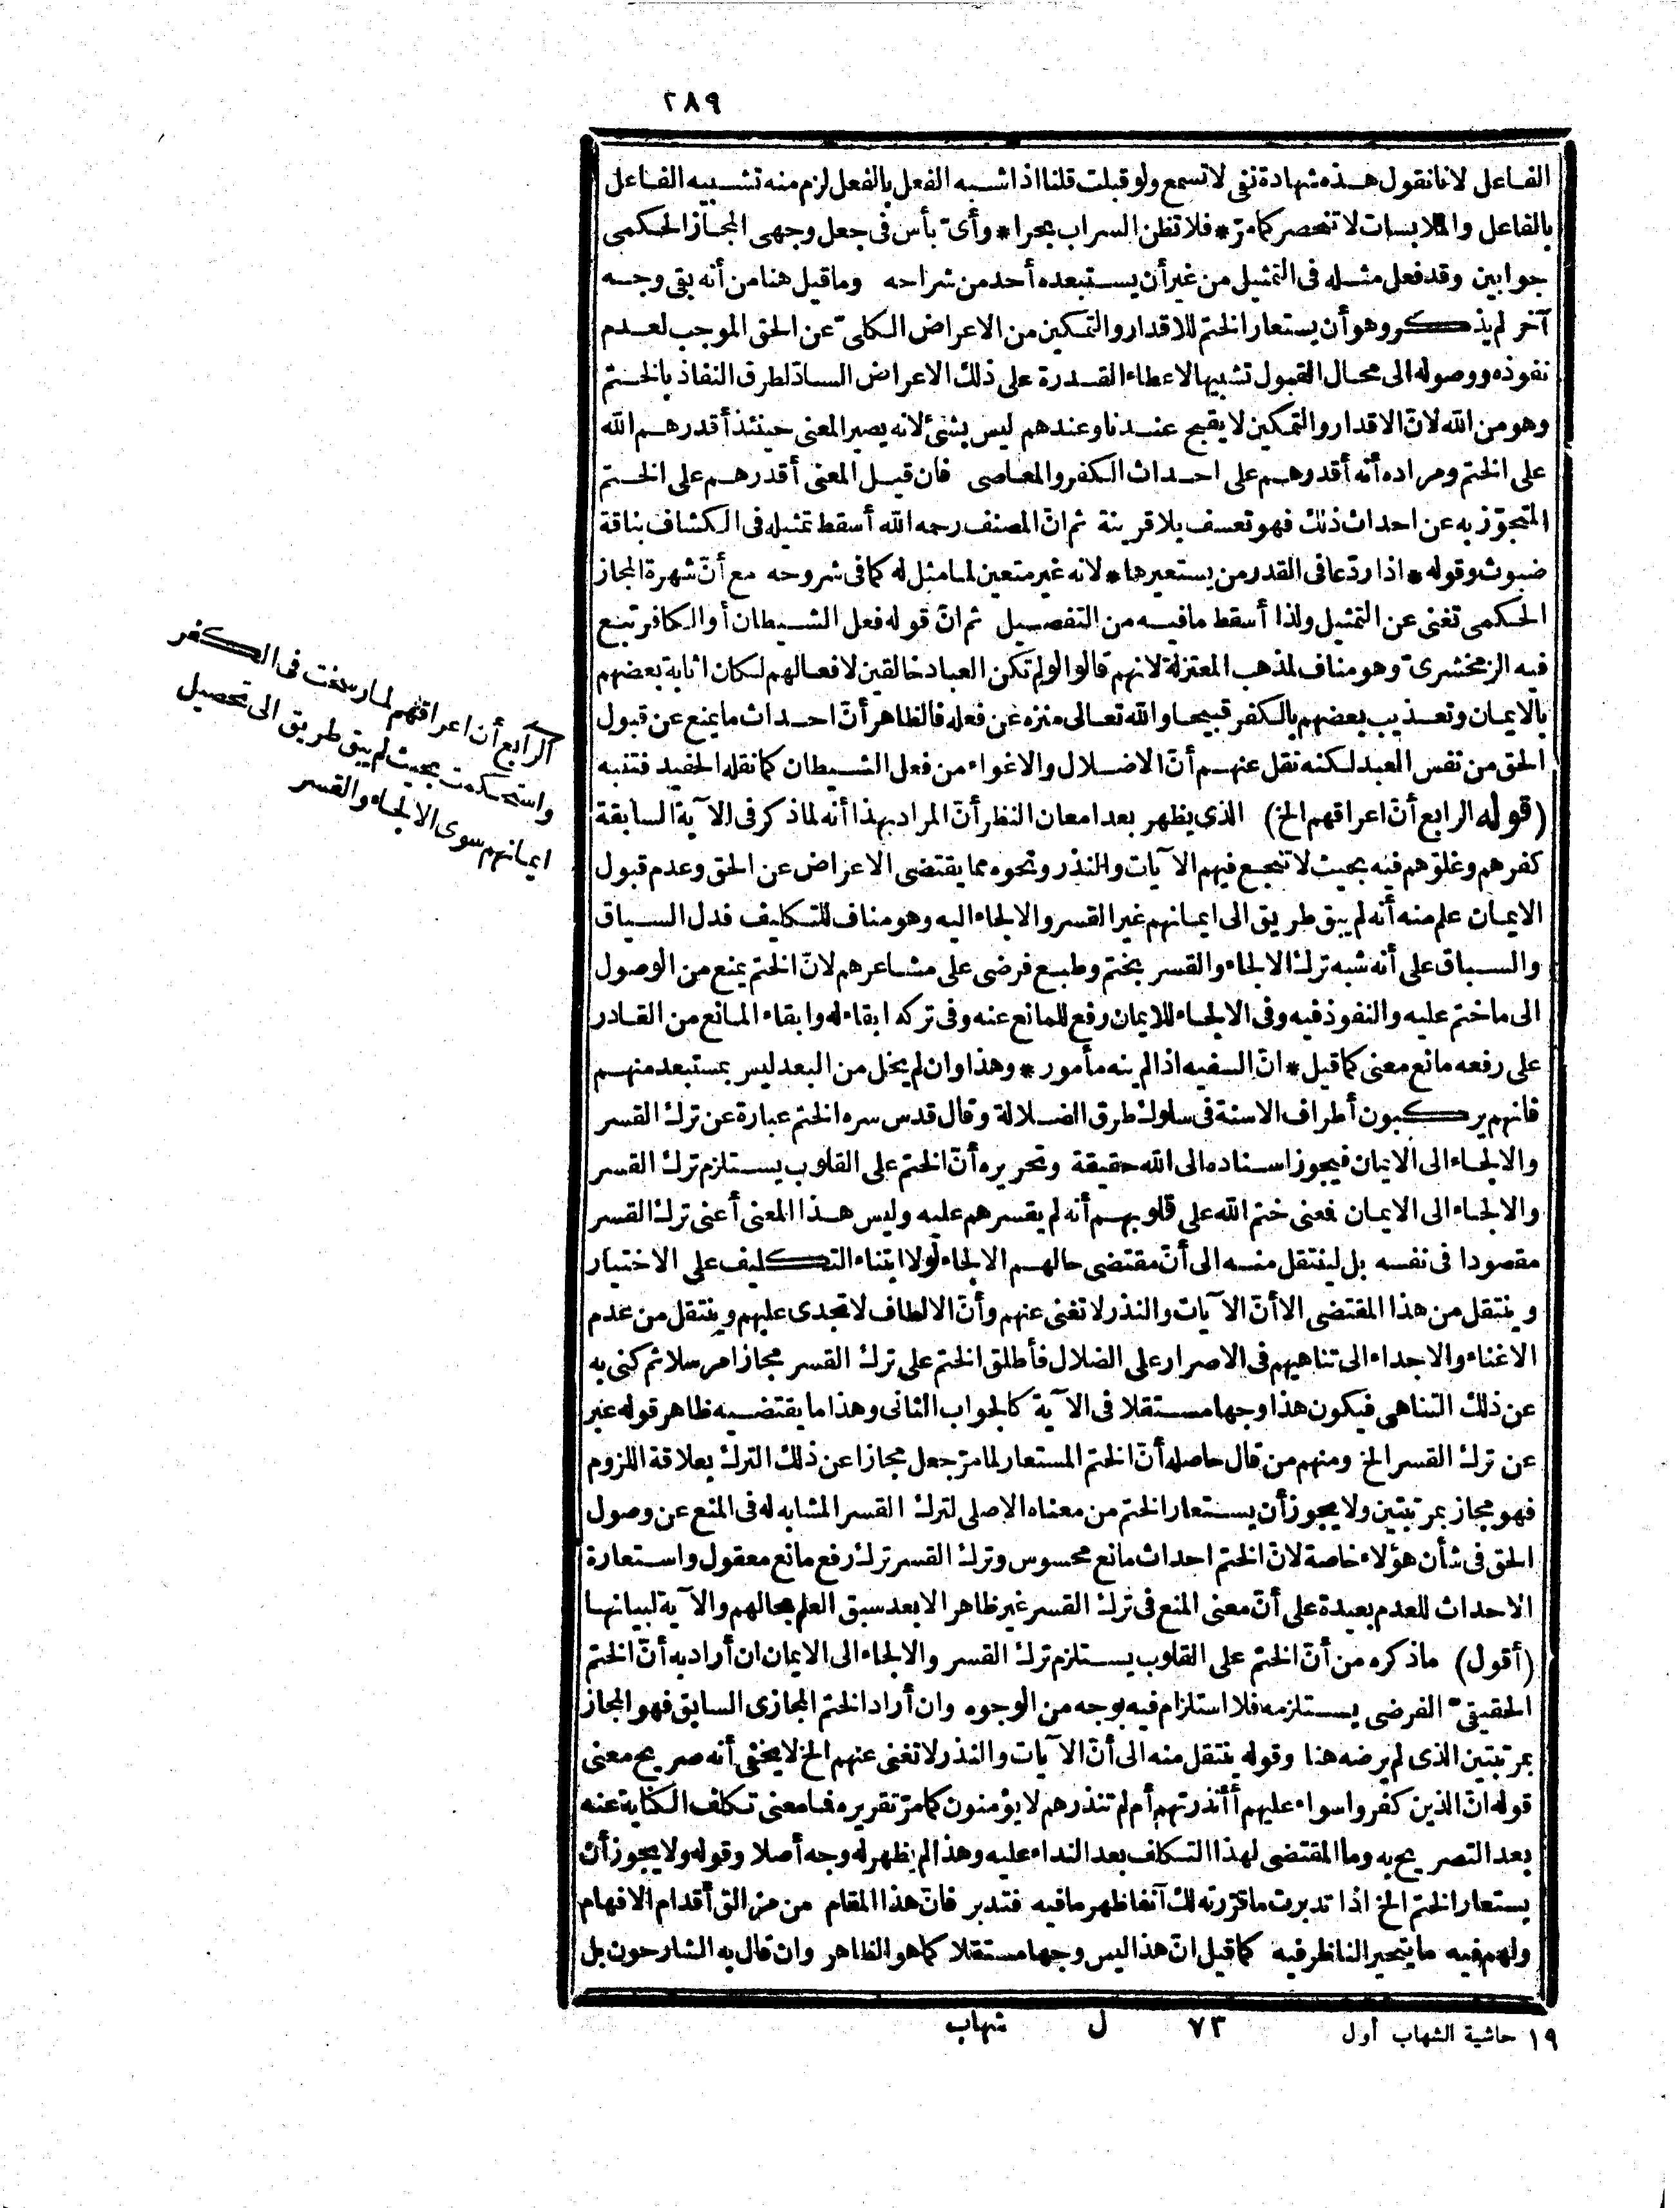 ٢٨٩
الفاعل لانا نقول هذه شهادة نفى لا تسمع ولو قبلت قلنا اذا شبه الفعل بالفعل لزم منه تشبيه الفاعل
بالفاعل والملابسات لا تنحصر كما مرّ * فلا تظن السراب بحرا * وأىّ بأس فى جعل وجهى المجاز الحكمى
جوابين وقد فعل مثله فى التمثيل من غير أن يستبعده أحد من شراحه وما قيل هنا من أنه بقى وجه
آخر لم يذكر وهو أن يستعار الختم للاقدار والتمكين من الاعراض الكلىّ عن الحق الموجب لعدم
نفوذه ووصوله الى محال القبول تشبيها لاعطاء القدرة على ذلك الاعراض السادّ لطرق النفاذ بالختم
وهو من الله لانّ الاقدار والتمكين لا يقبح عندنا وعندهم ليس بشئ لانه يصير المعنى حينئذ أقدرهم الله
على الختم ومراده أنه أقدرهم على احداث الكفر والمعاصى فان قيل المعنى أقدرهم على الختم
المتجوّز به عن احداث ذلك فهو تعسف بلا قرينة ثم انّ المصنف رحمه الله أسقط تمثيله فى الكشاف بناقة
ضبوث وقوله * اذا ردّ عافى القدر من يستعيرها * لانه غير متعين لما مثل له كما فى شروحه مع أنّ شهرة المجاز
الحكمى تغنى عن التمثيل ولذا أسقط ما فيه من التفصيل ثم انّ قوله فعل الشيطان أو الكافر تبع
فيه الزمخشرىّ وهو مناف لمذهب المعتزلة لانهم قالوا لو لم تكن العباد خالقين لافعالهم لكان اثابة بعضهم
بالايمان وتعذيب بعضهم بالكفر قبيحا والله تعالى منزه عن فعله فالظاهر أنّ احداث ما يمنع عن قبول
الحق من نفس العبد لكنه نقل عنهم أنّ الاضلال والاغواء من فعل الشيطان كما نقله الحفيد فتنبه
(قوله الرابع أنّ اعراقهم الخ) الذى يظهر بعد امعان النظر أنّ المراد بهذا أنه لما ذكر فى الآية السابقة
كفرهم وغلوّهم فيه بحيث لا تنجع فيهم الآيات والنذر ونحوه مما يقتضى الاعراض عن الحق وعدم قبول
الايمان علم منه أنه لم يبق طريق الى ايمانهم غير القسر والالجاء اليه وهو مناف للتكليف فدل السياق
والسباق على أنه شبه ترك الالجاء والقسر بختم وطبع فرضى على مشاعرهم لانّ الختم يمنع من الوصول
الى ما ختم عليه والنفوذ فيه وفى الالجاء للايمان رفع للمانع عنه وفى تركه ابقاء له وابقاء المانع من القادر
على رفعه مانع معنى كما قيل * انّ السفيه اذا لم ينه مأمور * وهذا وان لم يخل من البعد ليس بمستبعد منهم
فانهم يركبون أطراف الاسنة فى سلوك طرق الضلالة وقال قدس سره الختم عبارة عن ترك القسر
والالجاء الى الايمان فيجوز اسناده الى الله حقيقة وتحريره أنّ الختم على القلوب يستلزم ترك القسر
والالجاء الى الايمان فمعنى ختم الله على قلوبهم أنه لم يقسرهم عليه وليس هذا المعنى أعنى ترك القسر
مقصودا فى نفسه بل لينتقل منه الى أنّ مقتضى حالهم الالجاء لولا ابتناء التكليف على الاختيار
وينتقل من هذا المقتضى الا أنّ الآيات والنذر لا تغنى عنهم وأنّ الالطاف لا تجدى عليهم وينتقل من عدم
الاغناء والاجداء الى تناهيهم فى الاصرار على الضلال فأطلق الختم على ترك القسر مجازا مرسلا ثم كنى به
عن ذلك التناهى فيكون هذا وجها مستقلا فى الآية كالجواب الثانى وهذا ما يقتضيه ظاهر قوله عبر
عن ترك القسر الخ ومنهم من قال حاصله أنّ الختم المستعار لما مرّ جعل مجازا عن ذلك الترك بعلاقة اللزوم
فهو مجاز بمرتبتين ولا يجوز أن يستعار الختم من معناه الاصلى لترك القسر المشابه له فى المنع عن وصول
الحق فى شأن هؤلاء خاصة لانّ الختم احداث مانع محسوس وترك القسر ترك رفع مانع معقول واستعارة
الاحداث للعدم بعيدة على أنّ معنى المنع فى ترك القسر غير ظاهر الا بعد سبق العلم بحالهم والآية لبيانها
(أقول) ما ذكره من أنّ الختم على القلوب يستلزم ترك القسر والالجاء الى الايمان ان أراد به أنّ الختم
الحقيقىّ الفرضى يستلزمه فلا استلزام فيه بوجه من الوجوه وان أراد الختم المجازى السابق فهو المجاز
بمرتبتين الذى لم يرضه هنا وقوله ينتقل منه الى أنّ الآيات والنذر لا تغنى عنهم الخ لا يخفى أنه صريح معنى
قوله انّ الذين كفروا سواء عليهم أأنذرتهم أم لم تنذرهم لا يؤمنون كما مرّ تقريره فما معنى تكلف الكناية عنه
بعد التصريح به وما المقتضى لهذا التكلف بعد النداء عليه وهذا لم يظهر له وجه أصلا وقوله ولا يجوز أن
يستعار الختم الخ اذا تدبرت ما قرّرته لك آنفا ظهر ما فيه فتدبر فانّ هذا المقام من مزالق أقدام الافهام
ولهم فيه ما يتحير الناظر فيه كما قيل انّ هذا ليس وجها مستقلا كما هو الظاهر وان قال به الشارحون بل
الرابع أن اعراقهم لما رسخت فى الكفر
واستحكمت بحيث لم يبق طريق الى تحصيل
ايمانهم سوى الالجاء والقسر
١٩ حاشية الشهاب أول ٧٣ ل شهاب